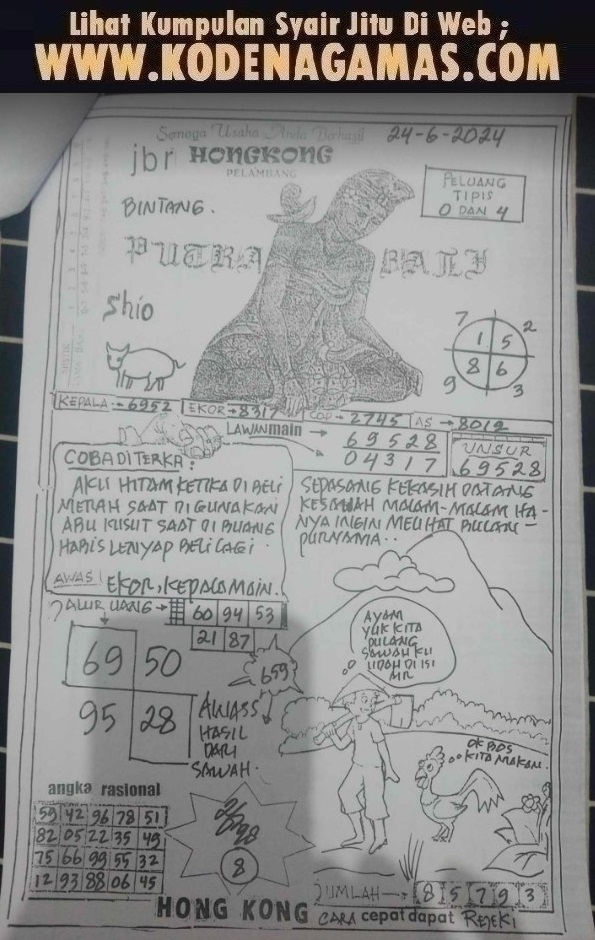 Lihat Kumpulan Syair Jitu Di Web ;
WWW.KODENAGAMAS.COM
Semoga Usaha Anda Berhasil
24-6-2024
jbr HONGKONG
PELAMBANG
PELUANG
TIPIS
0 DAN 4
BINTANG.
PUTRA BALI
Shio
7 2
1 5
8 6
9 3
KEPALA:-6952 EKOR→8317 COP→2745 AS→8012
LAWAN main → 69528
04317
UNSUR
69528
COBA DITERKA:
AKU HITAM KETIKA DI BELI
MERAH SAAT DIGUNAKAN
ABU KUSUT SAAT DI BUANG
HABIS LENYAP BELI LAGI.
AWAS! EKOR, KEPALA MAIN.
SEPASANG KEKASIH DATANG
KESAWAH MALAM-MALAM HA-
NYA INGIN MELIHAT BULAN-
PURNAMA..
? ALUR UANG→ 60 94 53
21 87
69 50
95 28
659
AWASS
HASIL
DARI
SAWAH.
AYAM
YUK KITA
PULANG
SAWAH KU
UDAH DI ISI
AIR
OK BOS
KITA MAKAN.
angka rasional
59 42 96 78 51
82 05 22 35 49
75 66 99 55 32
12 93 88 06 45
8
JUMLAH→ 8 5 7 9 3
HONG KONG CARA cepat dapat REJEKI